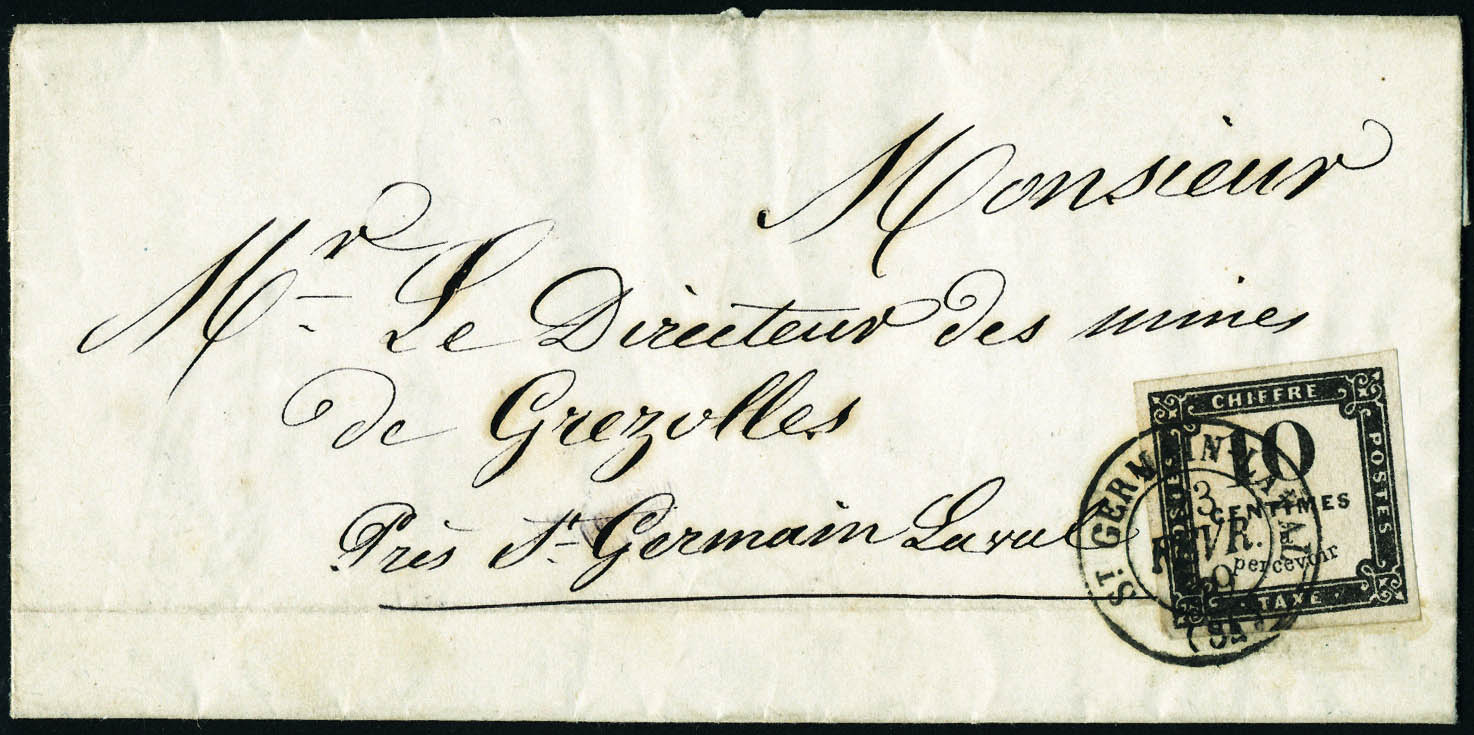 Monsieur
Mr Le Directeur des mines
de Grezolles
Près St Germain Laval
CHIFFRE
POSTES
10
CENTIMES
percevoir
TAXE
ST GERMAIN-LAVAL
3
FEVR.